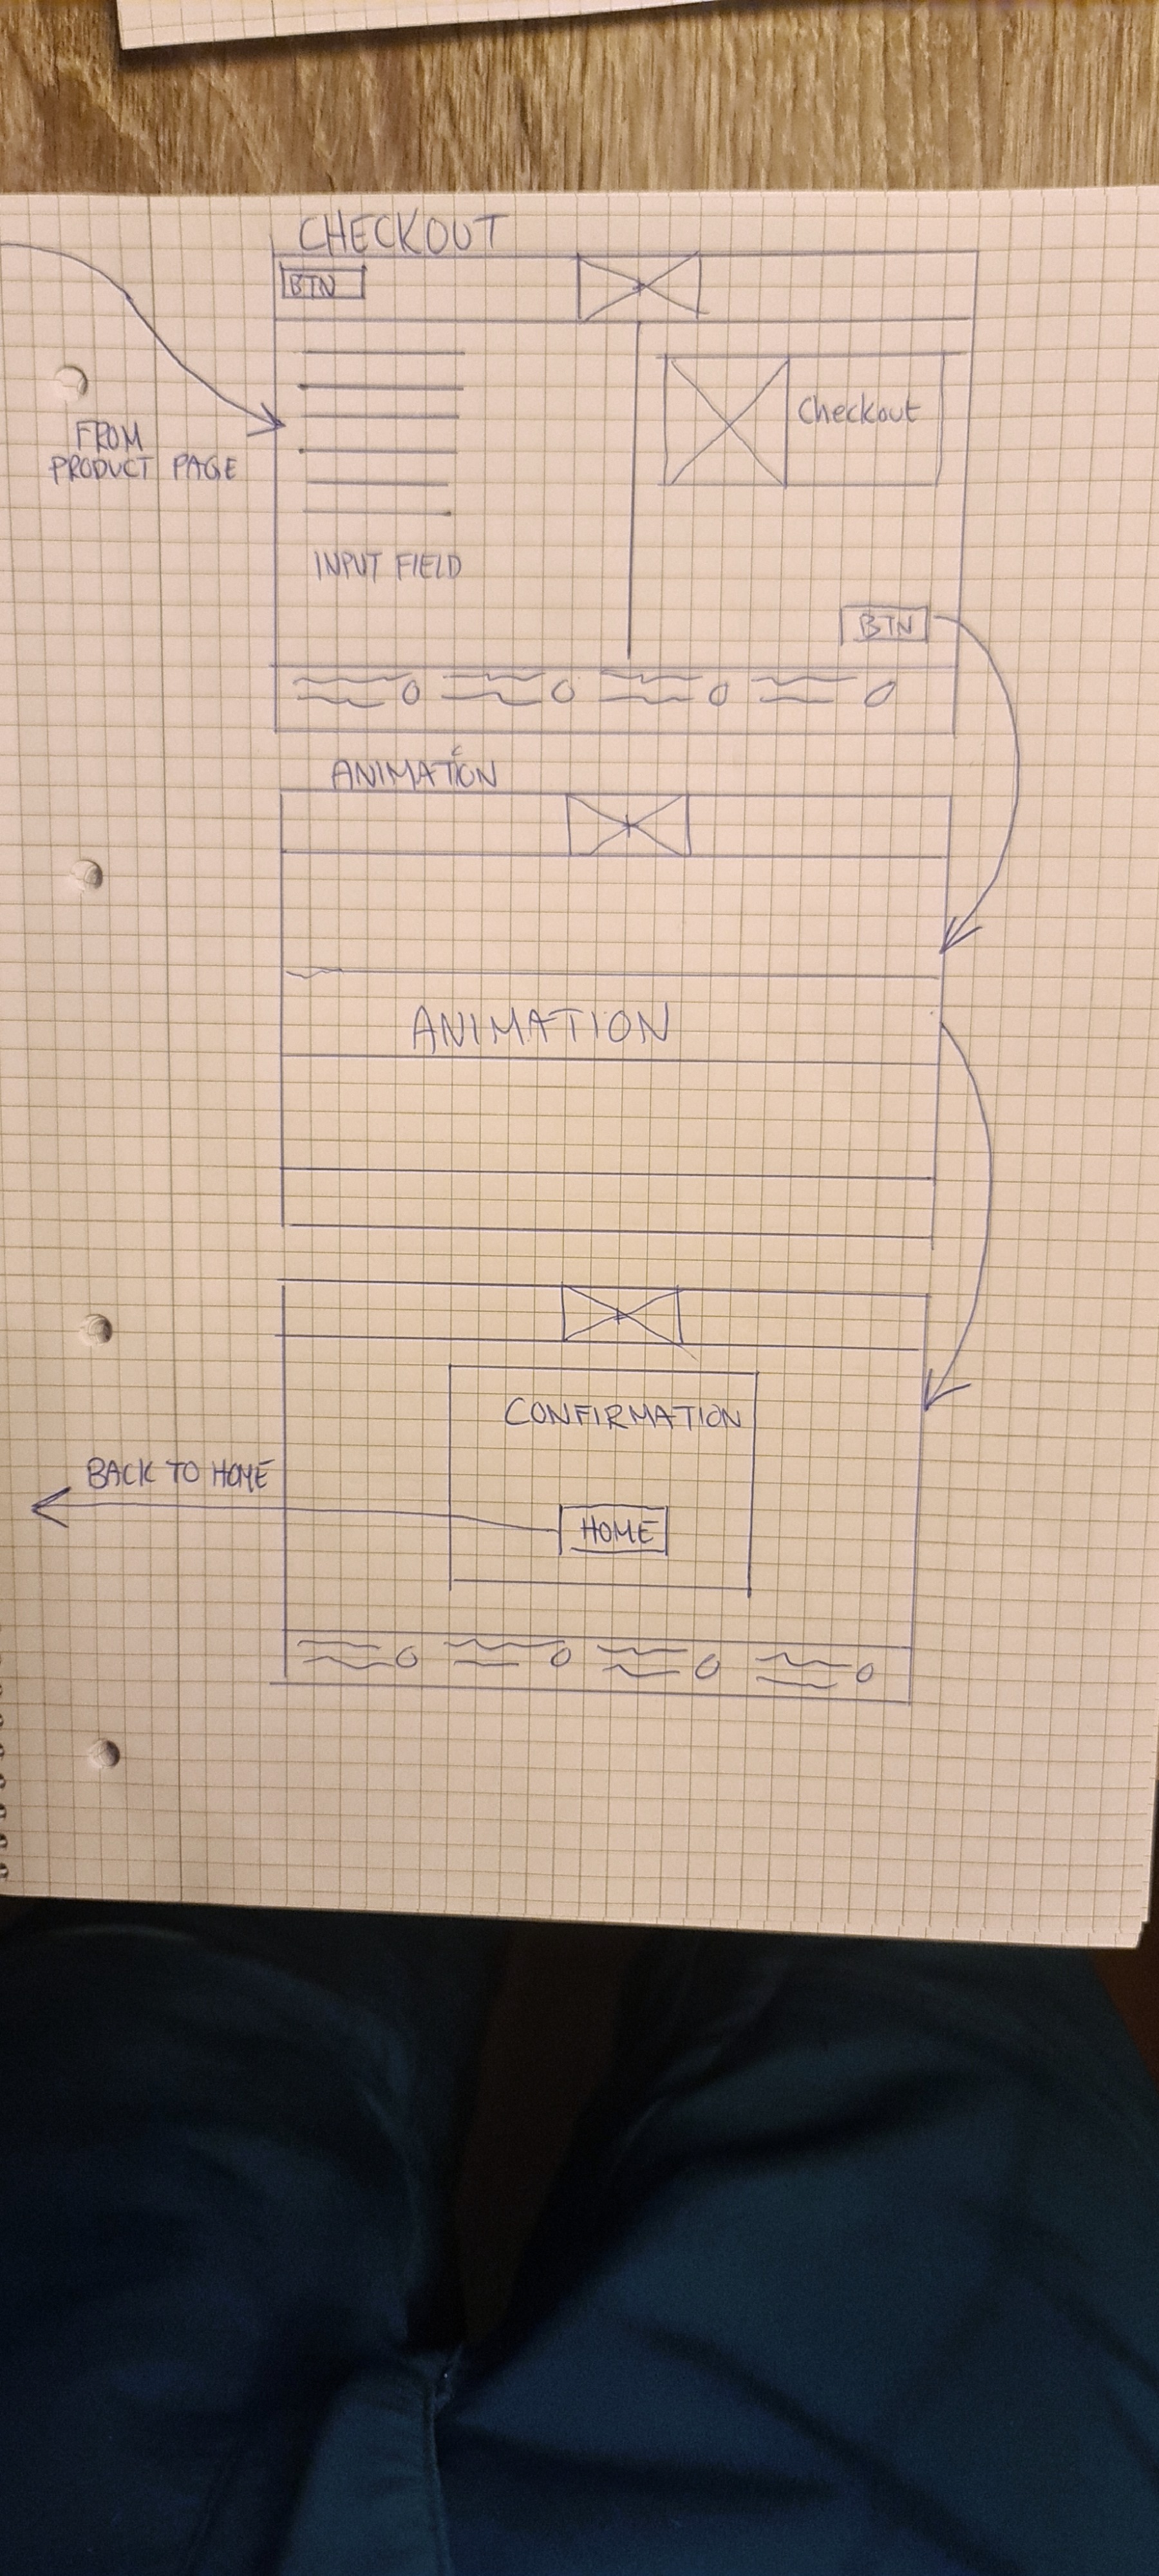 CHECKOUT
BTN
Checkout
FROM
PRODUCT PAGE
INPUT FIELD
BTN
ANIMATION
ANIMATION
CONFIRMATION
BACK TO HOME
HOME